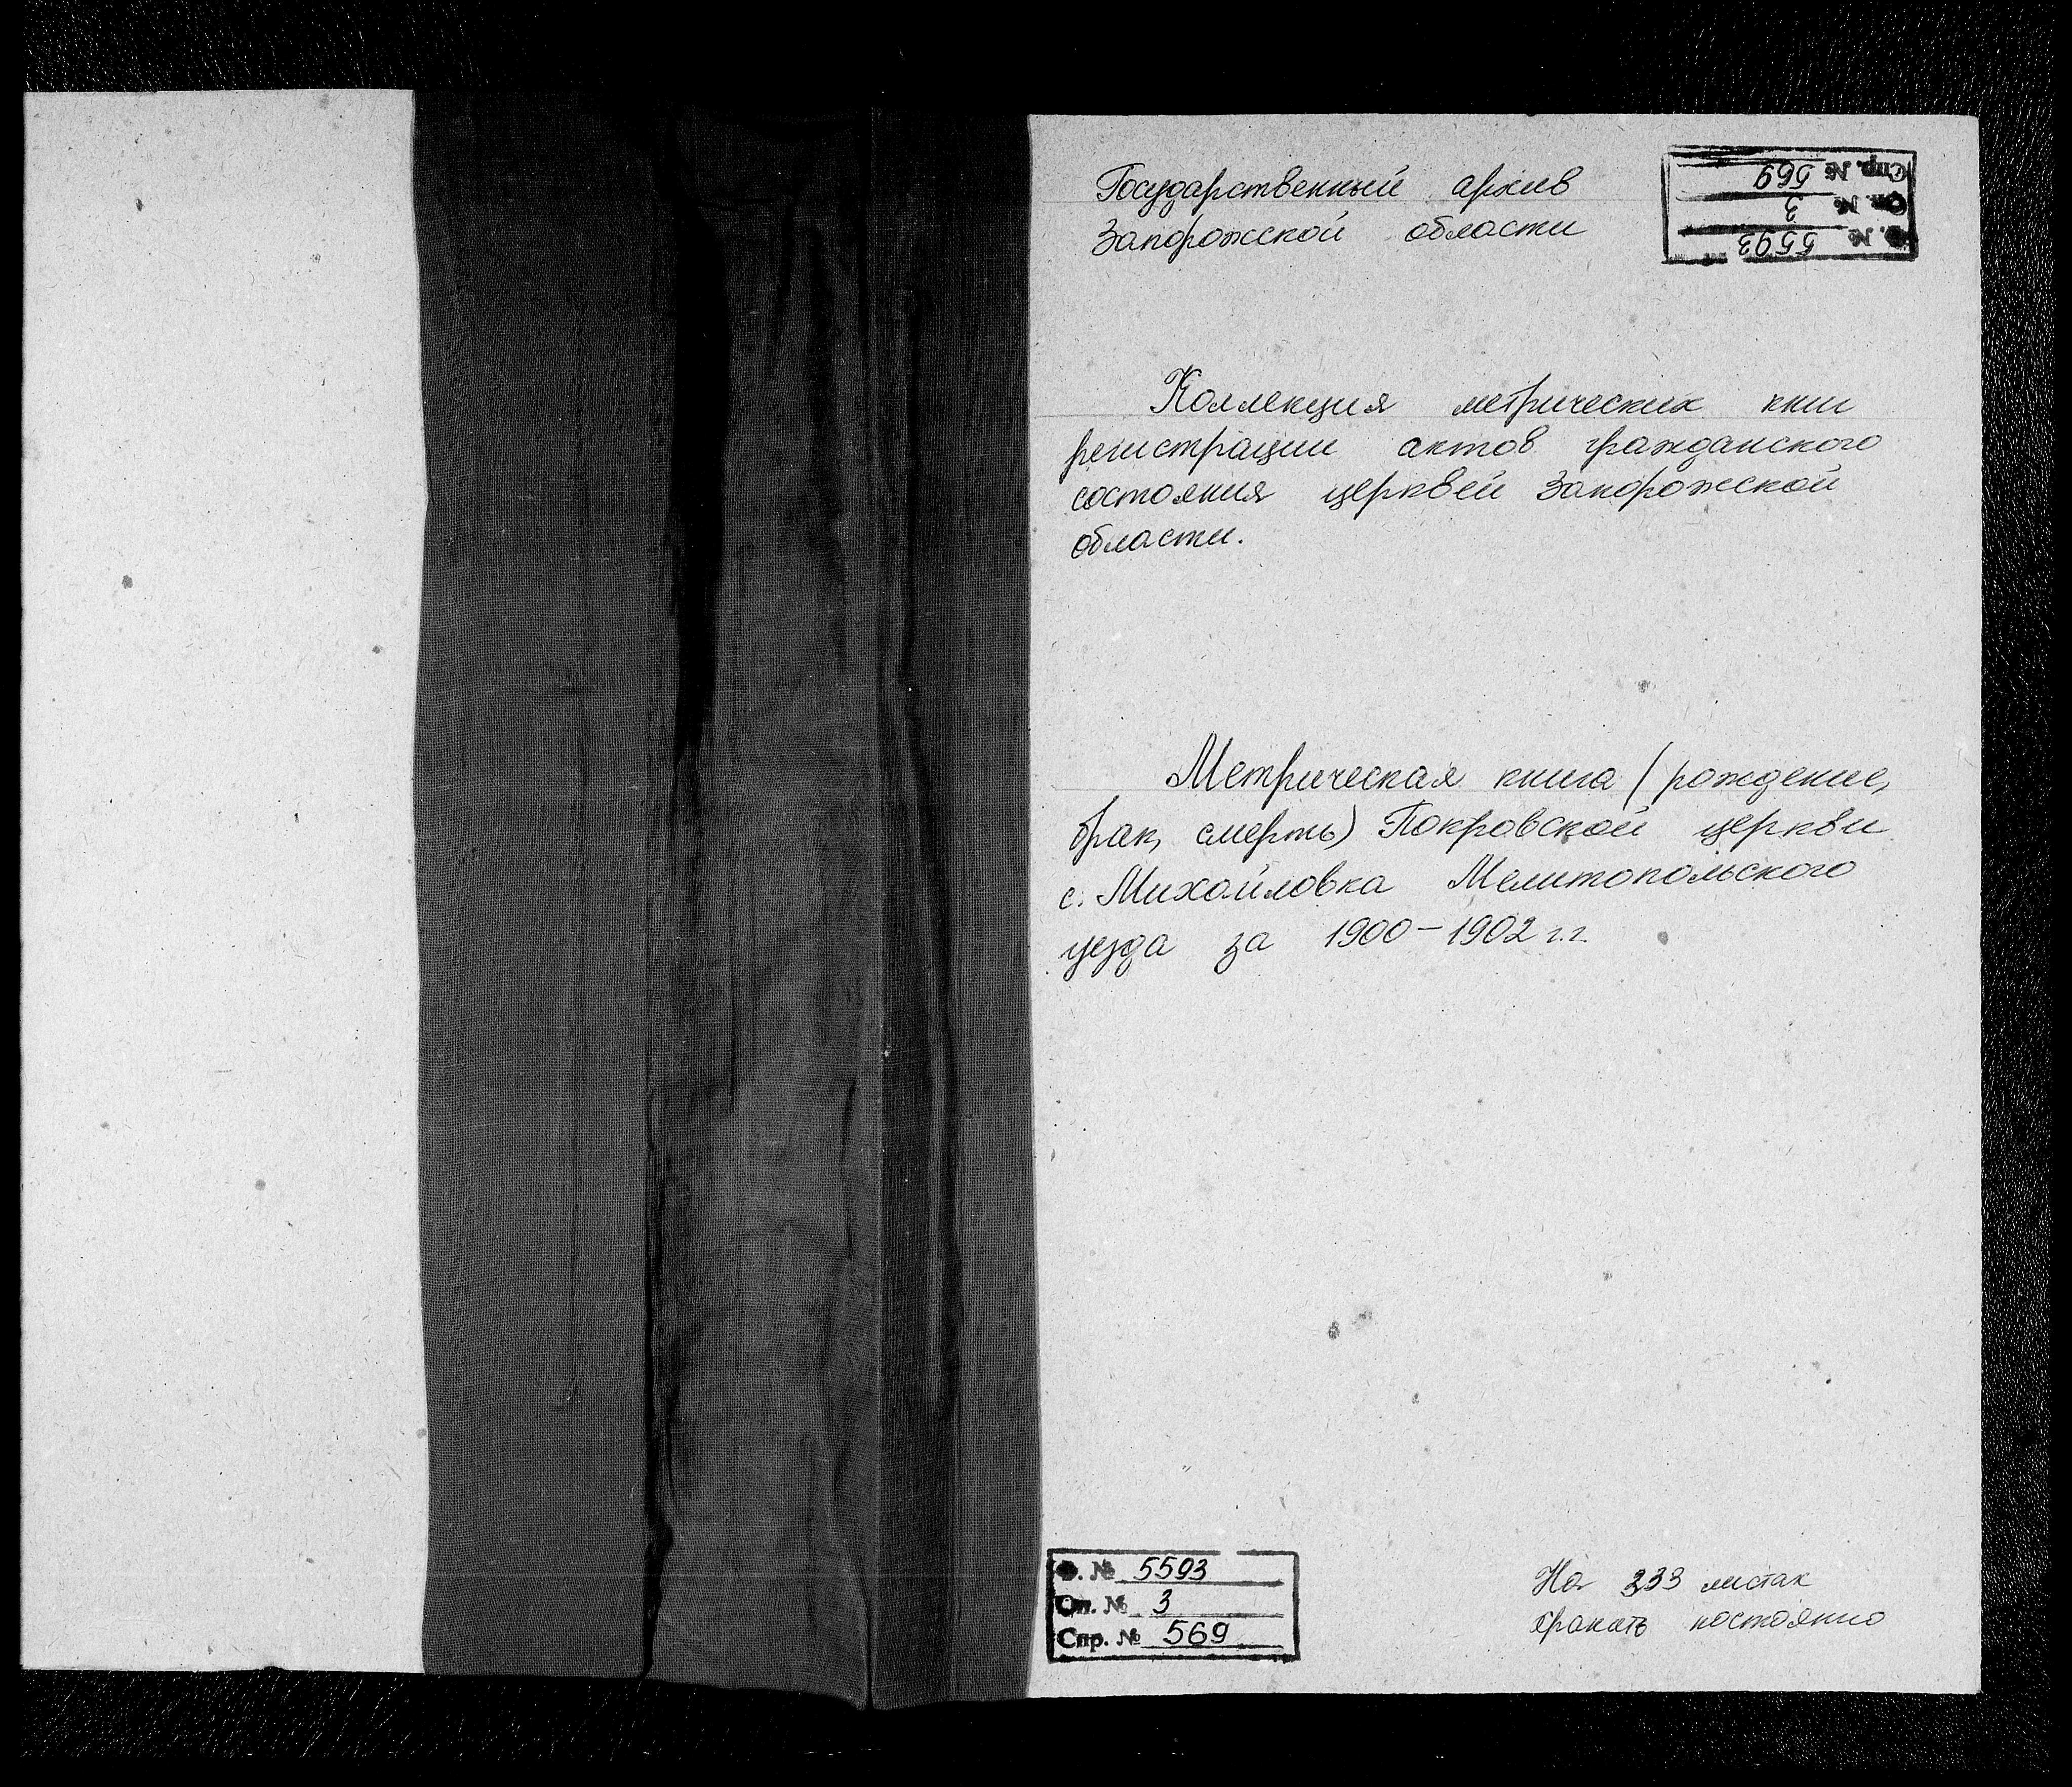 Государственный архив
Запорожской области
Ф. № 5593
Оп. № 3
Спр. № 569
Коллекция метрических книг
регистрации актов гражданского
состояния церквей Запорожской
области.
Метрическая книга (рождение,
брак, смерть) Покровской церкви
с. Михайловка Мелитопольского
уезда за 1900-1902 г.г.
Ф. № 5593
Оп. № 3
Спр. № 569
На 333 листах
хранить постоянно